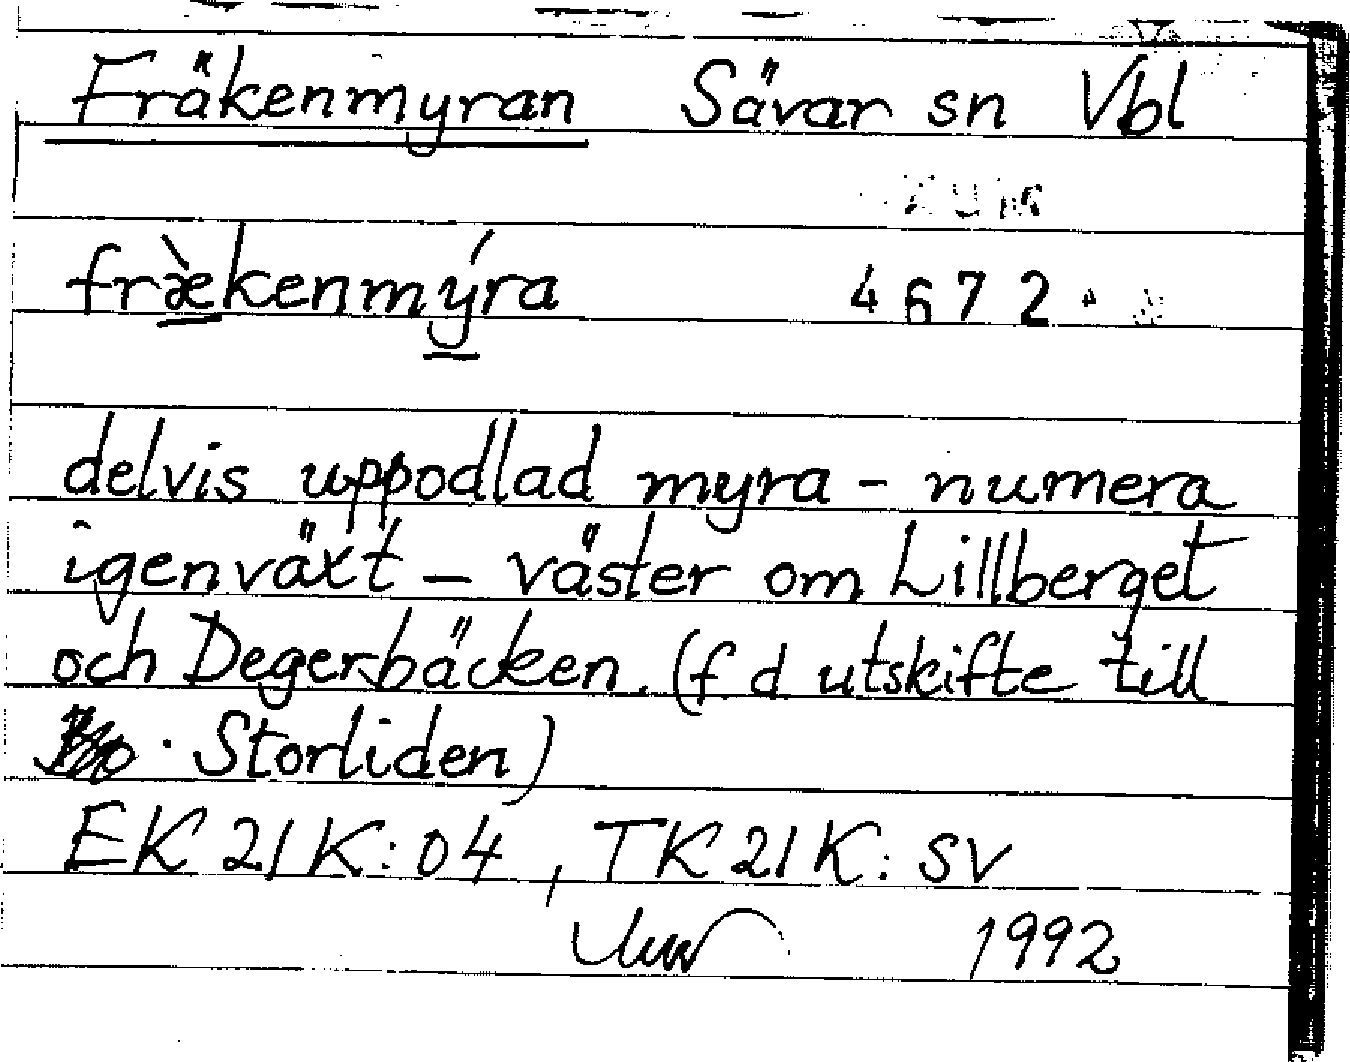 Fräkenmyran Sävar sn Vbl
fræ̀kenmýra 4672
delvis uppodlad myra - numera
igenväxt - väster om Lillberget
och Degerbäcken. (f d utskifte till
Storliden)
EK 21 K: 04, TK 21 K: SV
1992